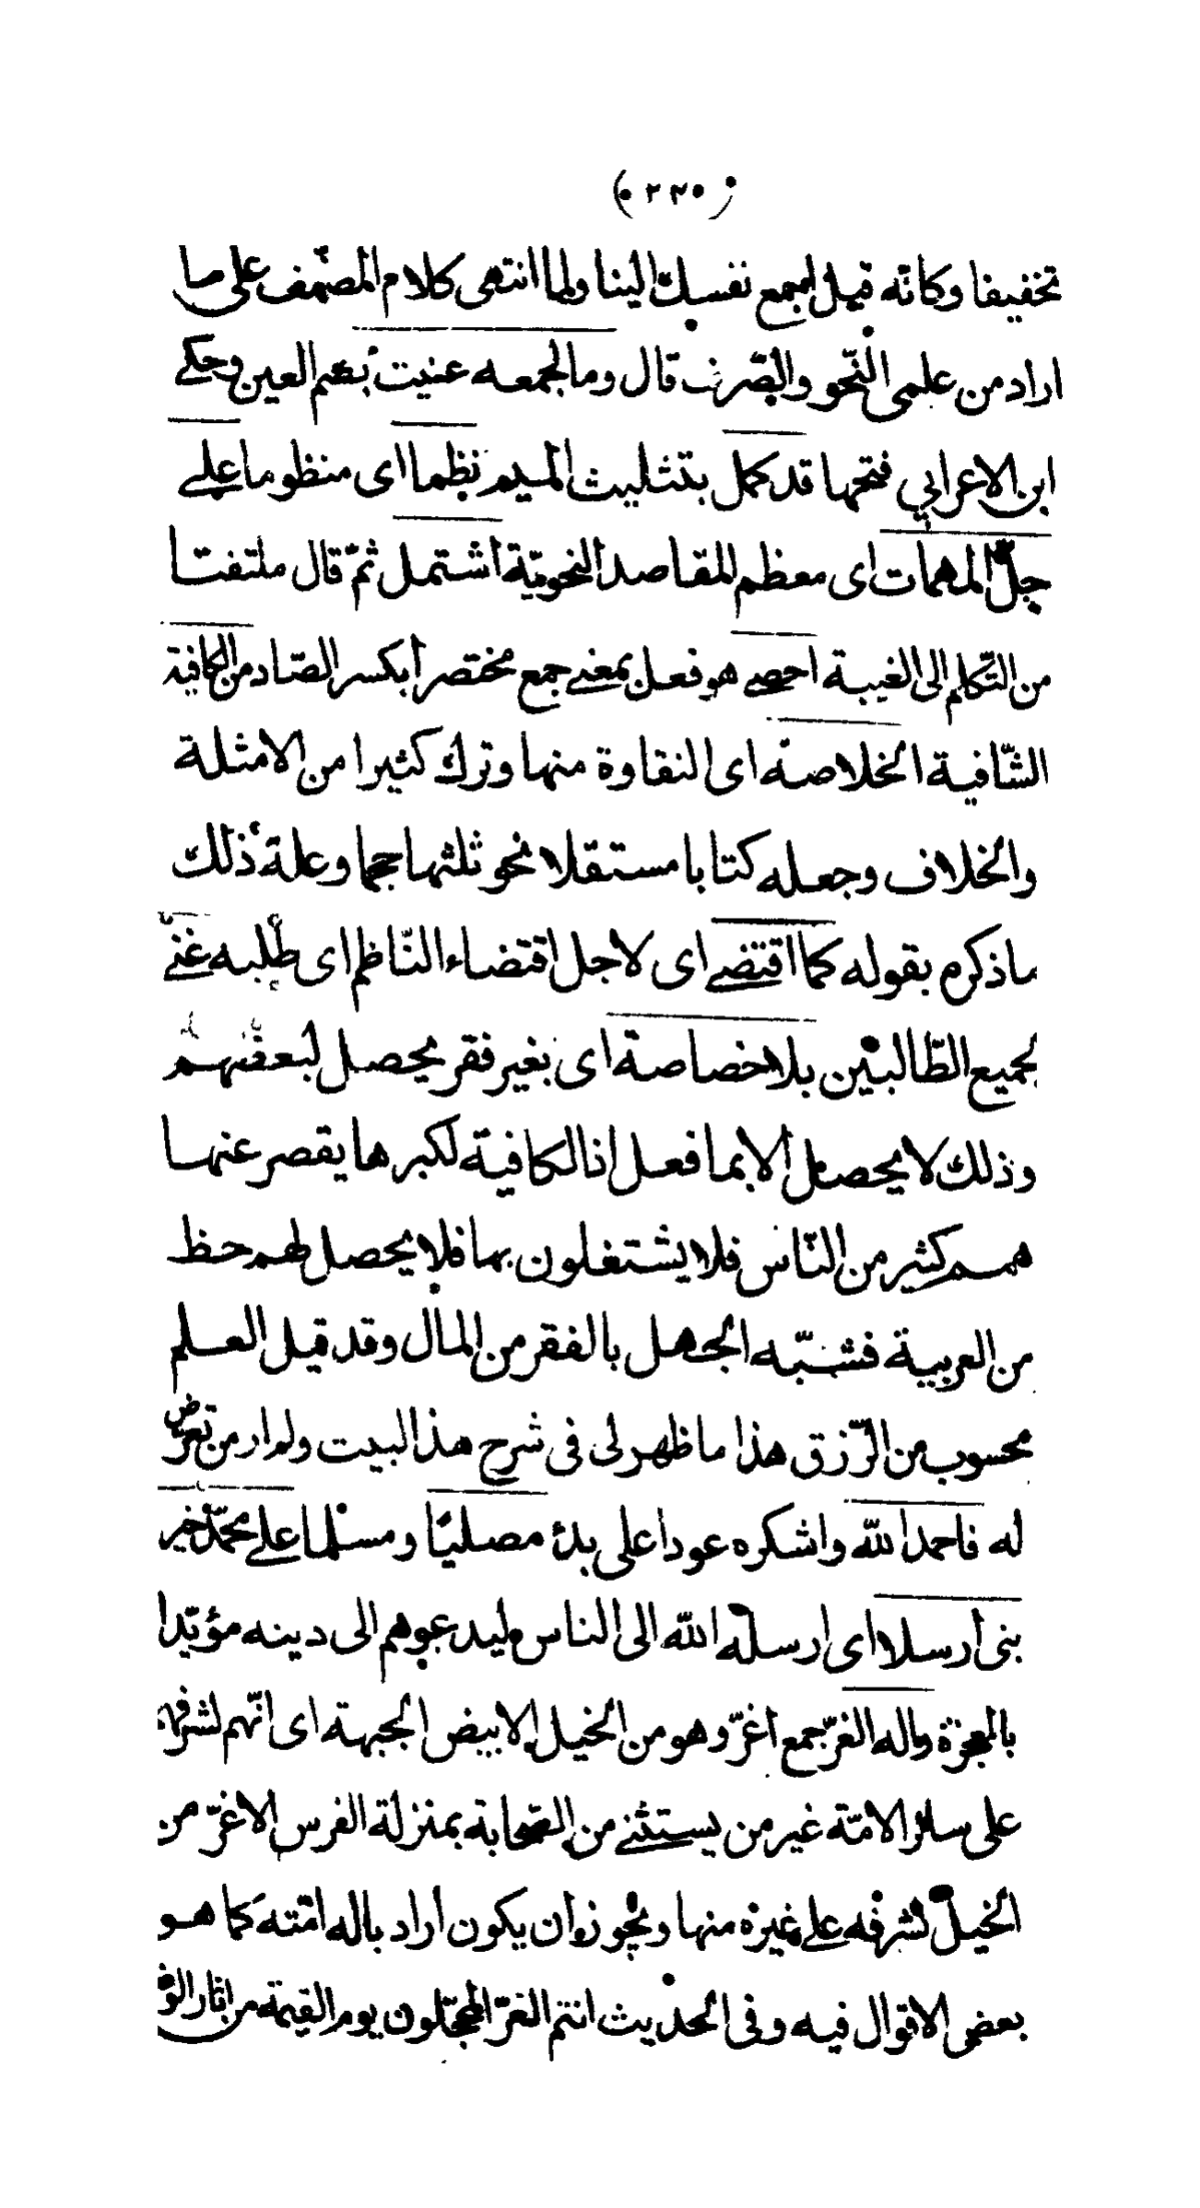 (٢٣٥)
تخفيفا وكانّه قيل اجمع نفسك الينا ولما انتهى كلام المصنف على ما
اراد من علمى النّحو والتّصريف قال وما بجمعه عنيت بضم العين وحكى
ابن الاعرابي فتحها قد كمل بتثليث الميم نظما اى منظوما على
جلّ المهمات اى معظم المقاصد النحويّة اشتمل ثمّ قال ملتفتا
من التّكلم الى الغيبة احصى هو فعل بمعنى جمع مختصرا بكسر الصّاد من الكافية
الشّافية الخلاصة اى النقاوة منها وترك كثيرا من الامثلة
والخلاف وجعله كتابا مستقلا نحو ثلثها حجما وعلة ذلك
ما ذكره بقوله كما اقتضى اى لاجل اقتضاء النّاظم اى طلبه غنى
لجميع الطّالبين بلا خصاصة اى بغير فقر يحصل لبعضهم
وذلك لا يحصل الا بما فعل اذ الكافية لكبرها يقصر عنها
همم كثير من النّاس فلا يشتغلون بها فلا يحصل لهم حظ
من العربية فشبّه الجهل بالفقر من المال وقد قيل العلم
محسوب من الرّزق هذا ما ظهر لى فى شرح هذا البيت ولم ار من تعرّض
له فاحمد الله واشكره عودا على بدء مصليًا ومسلما على محمّد خير
نبى أرسلا اى ارسله الله الى الناس ليدعوهم الى دينه مؤيّدا
بالمعجزة واله الغرّ جمع اغرّ وهو من الخيل الابيض الجبهة اى انّهم لشرفهم
على سائر الامّة غير من يستثنى من الصّحابة بمنزلة الفرس الاغرّ من
الخيل لشرفه على غيره منها ويجوز ان يكون اراد باله امّته كما هو
بعض الاقوال فيه وفى الحديث انتم الغرّ المحجّلون يوم القيمة من اثار الوضوء